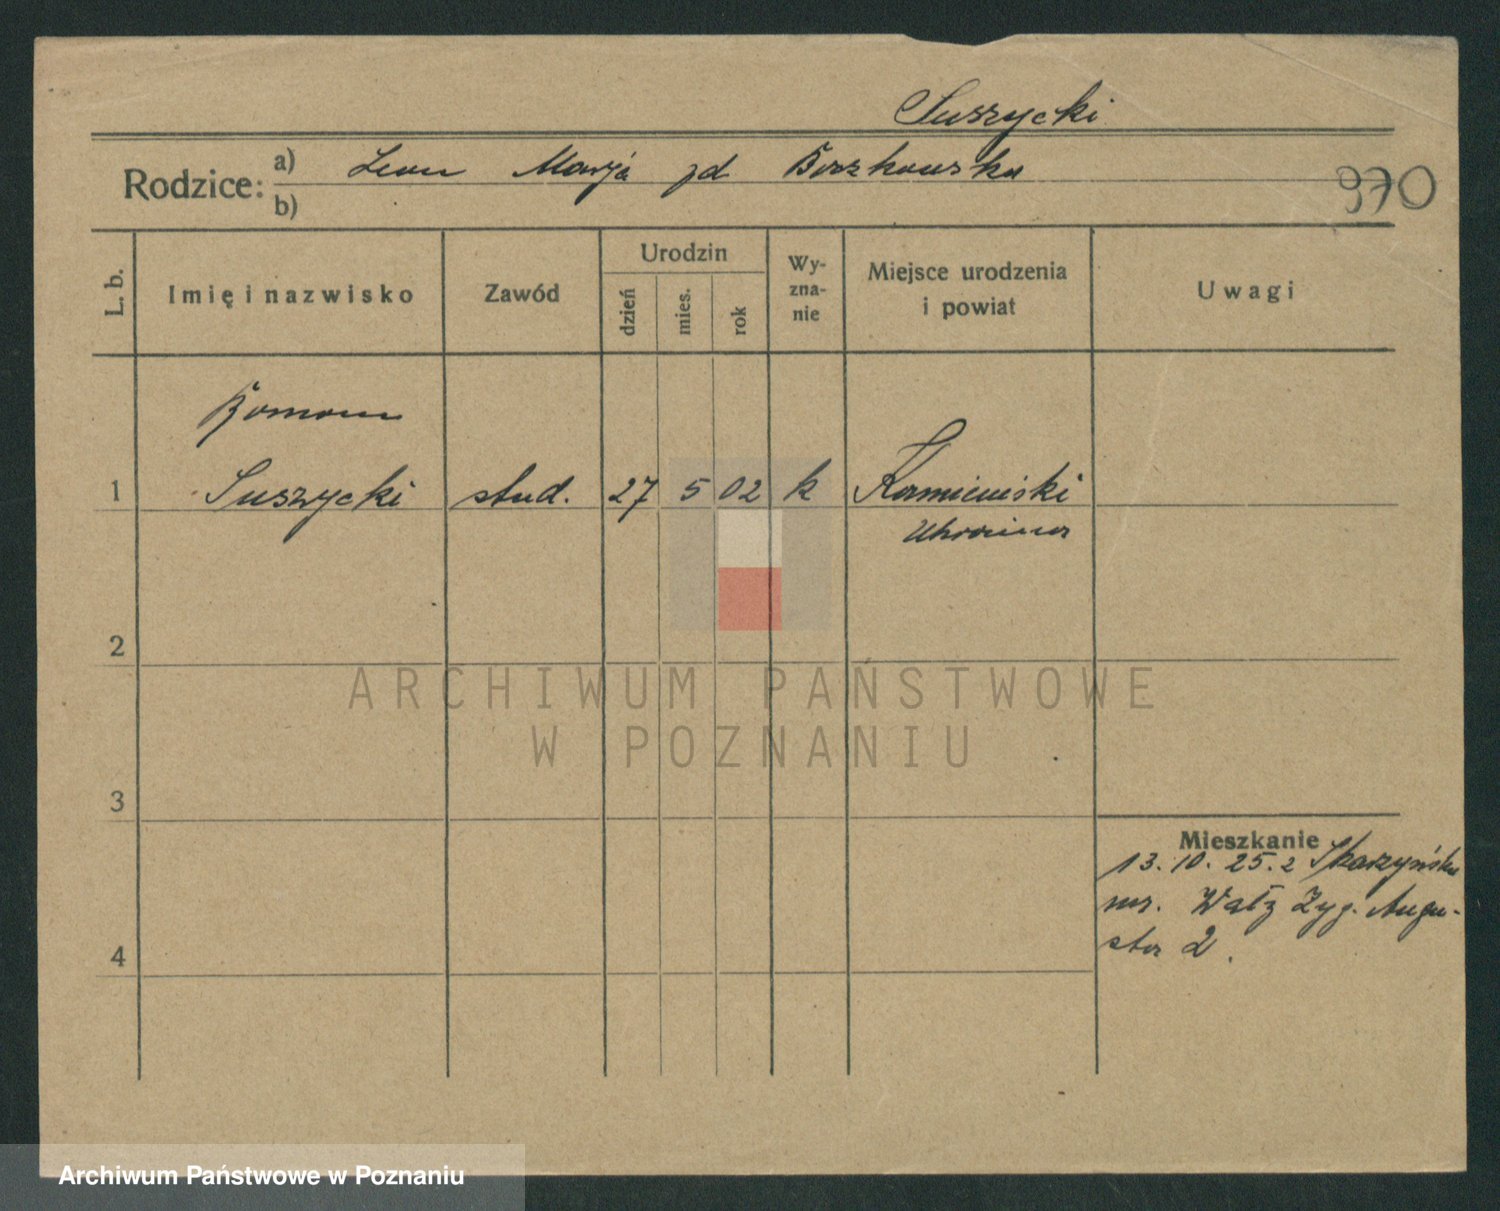 Suszycki
Rodzice: a) Leon Marja zd Borzkowska
b)
970
L. b.
Imię i nazwisko
Zawód
Urodzin
dzień
mies.
rok
Wy-
zna-
nie
Miejsce urodzenia
i powiat
Uwagi
Roman
1 Suszycki stud. 27 5 02 k Kamieniski
Ukraina
2
ARCHIWUM PAŃSTWOWE
W POZNANIU
3
Mieszkanie
13.10.25. z Skarzyńska
nr. Wałz Zyg. Augu-
sta 2.
4
Archiwum Państwowe w Poznaniu